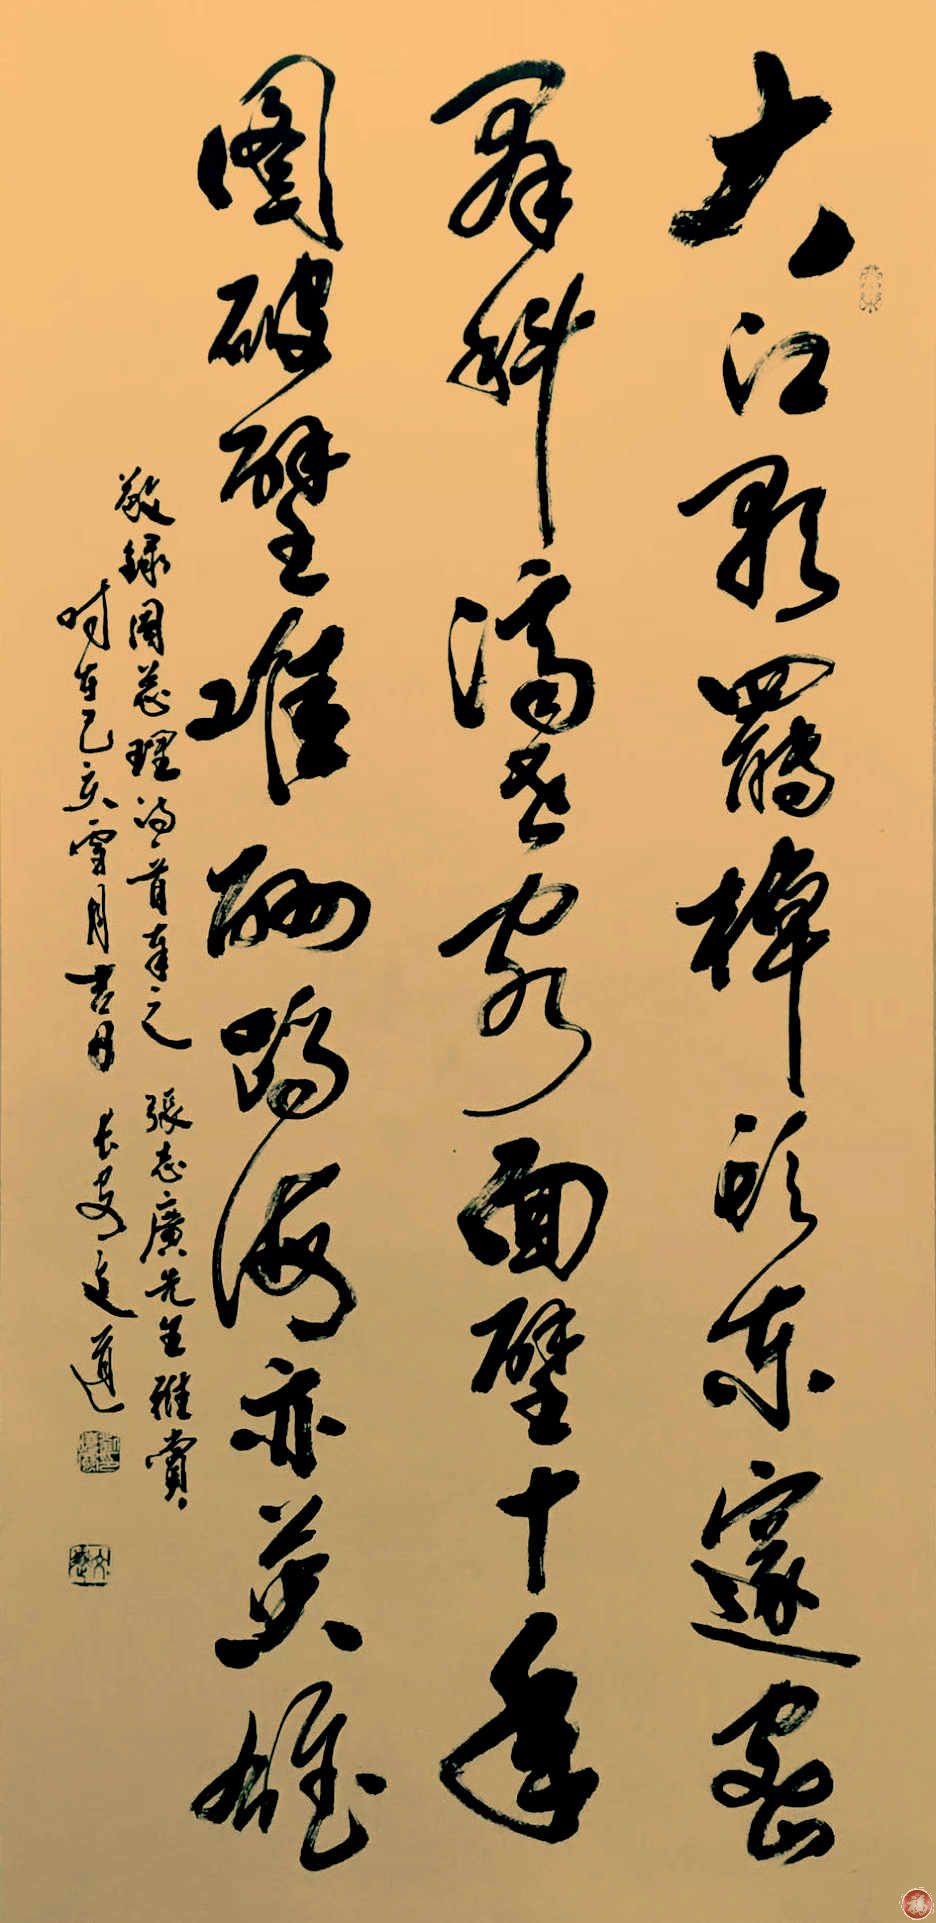 大江歌罷棹頭東邃密
群科濟世窮面壁十年
圖破壁難酬蹈海亦英雄
敬錄周總理詩一首奉之 張志廣先生雅賞
時在己亥雪月吉日 長安 道